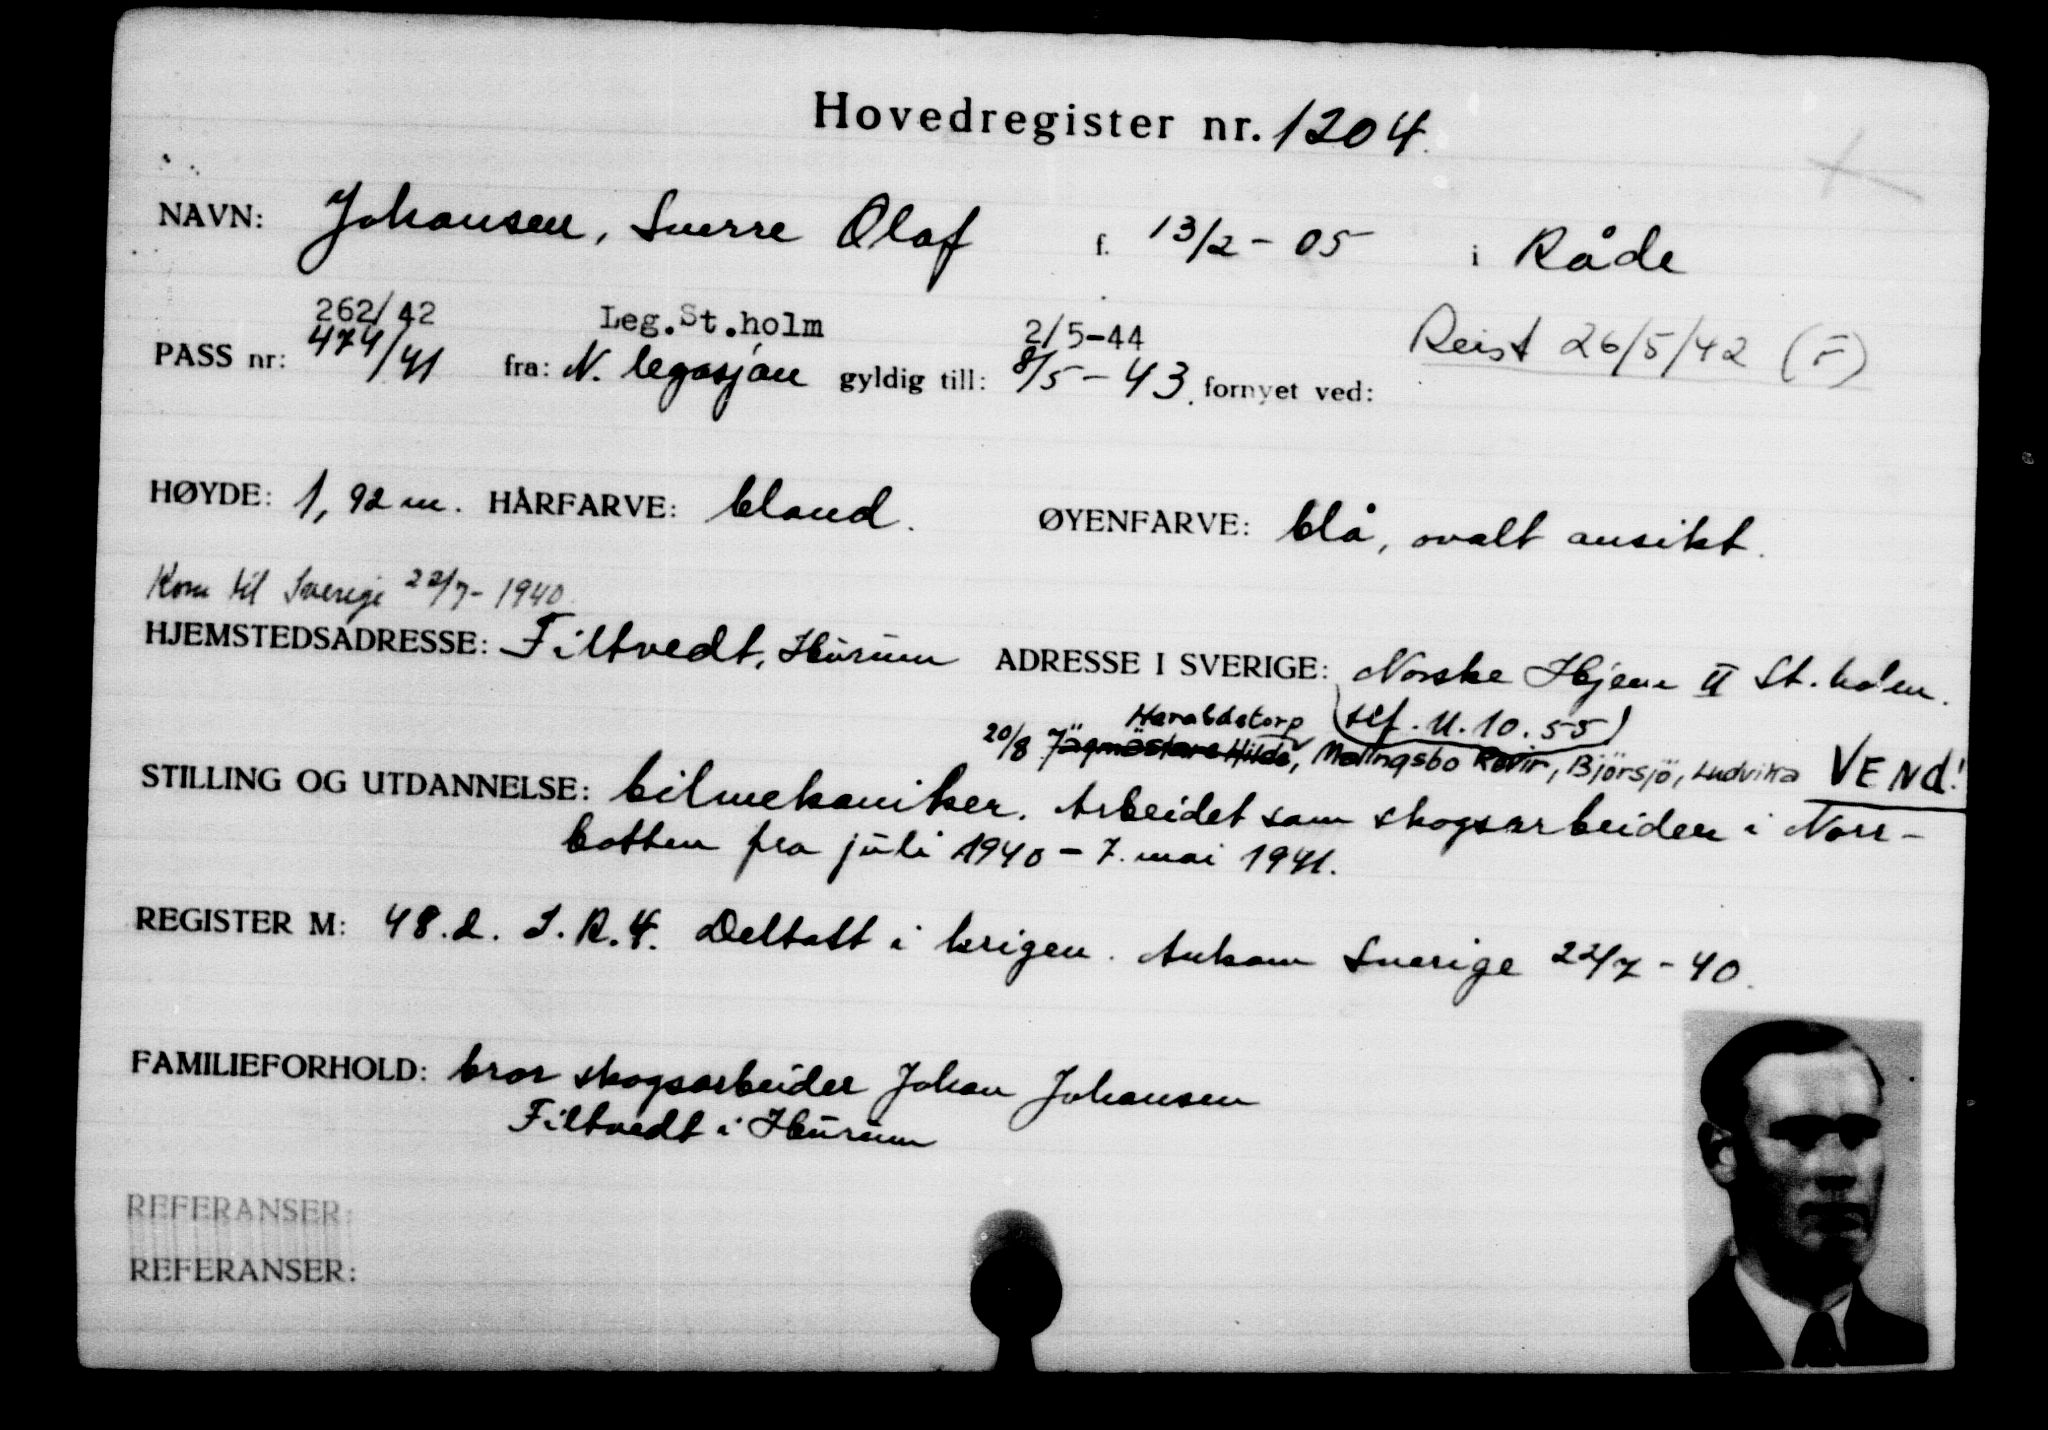 Hovedregister nr. 1204.
NAVN: Johansen, Sverre Olaf f. 13/2 - 05 i Råde
262/42 Leg.St.holm 2/5-44 Reist 26/5/42 (F)
PASS nr: 474/41 fra: N. legasjon gyldig till: 8/5 - 43. fornyet ved:
HØYDE: 1,92 m. HÅRFARVE: blond. ØYENFARVE: blå, ovalt ansikt.
Kom til Sverige 22/7 - 1940.
HJEMSTEDSADRESSE: Filtvedt, Hurum ADRESSE I SVERIGE: Norske Hjem II St. holm.
Haraldstorp (tlf. 11.10.55)
20/8 Jägmästare Hilde, Malingsbo Revir, Björsjö, Ludvika VENd!
STILLING OG UTDANNELSE: bilmekaniker. Arbeidet som skogsarbeider i Norr-
botten fra juli 1940 - 7. mai 1941.
REGISTER M: 48.d. I.R.4. Deltatt i krigen. Ankom Sverige 22/7 - 40.
FAMILIEFORHOLD: bror skogsarbeider Johan Johansen
Filtvedt i Hurum
REFERANSER:
REFERANSER: